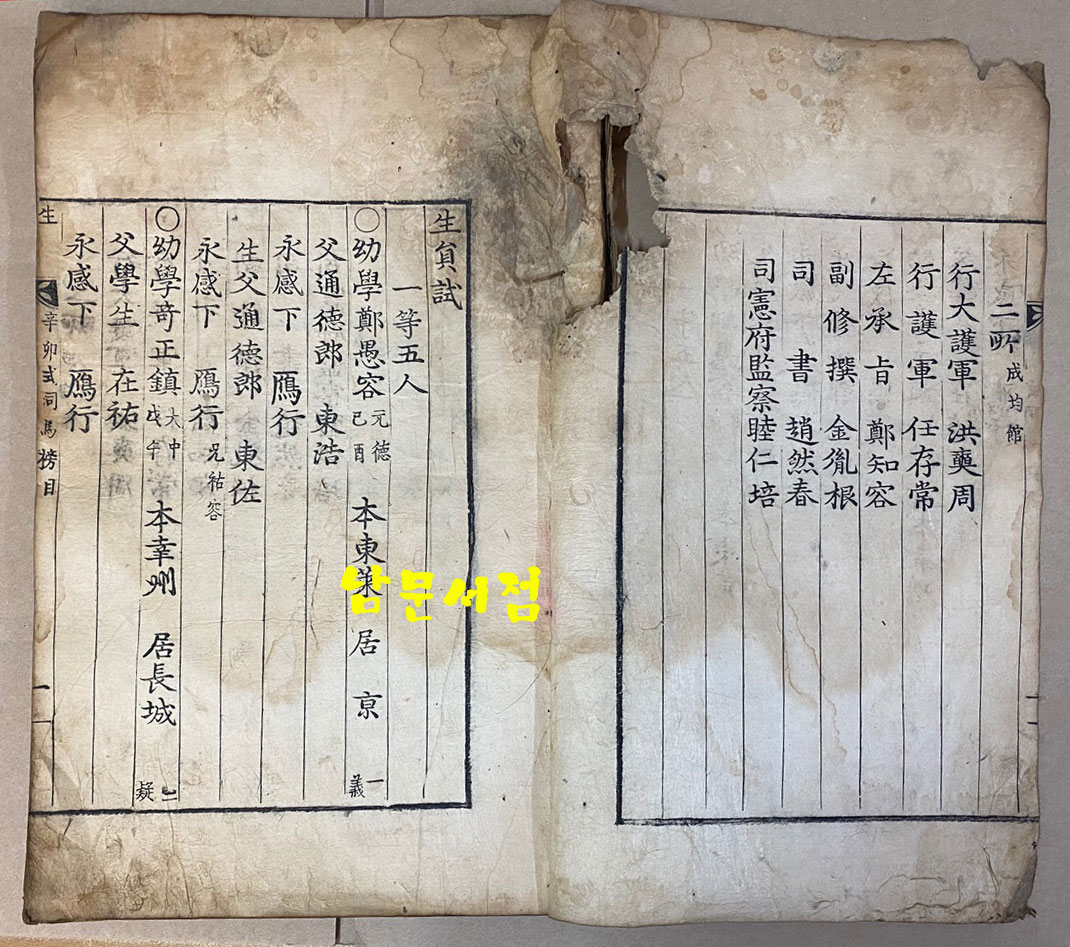 二所 成均館
行大護軍 洪奭周
行護軍 任存常
左承旨 鄭知容
副修撰 金胤根
司書 趙然春
司憲府監察睦仁培
生貟試
一等五人
○幼學鄭愚容 元德 己酉 本東萊 居京 一義
父通德郎 東浩
永感下 鴈行
生父通德郎 東佐
永感下 鴈行 兄祐容
○幼學奇正鎮 大中 戊午 本幸州 居長城 二疑
父學生在祐
永感下 鴈行
生 辛卯式司馬榜目 一
남문서점